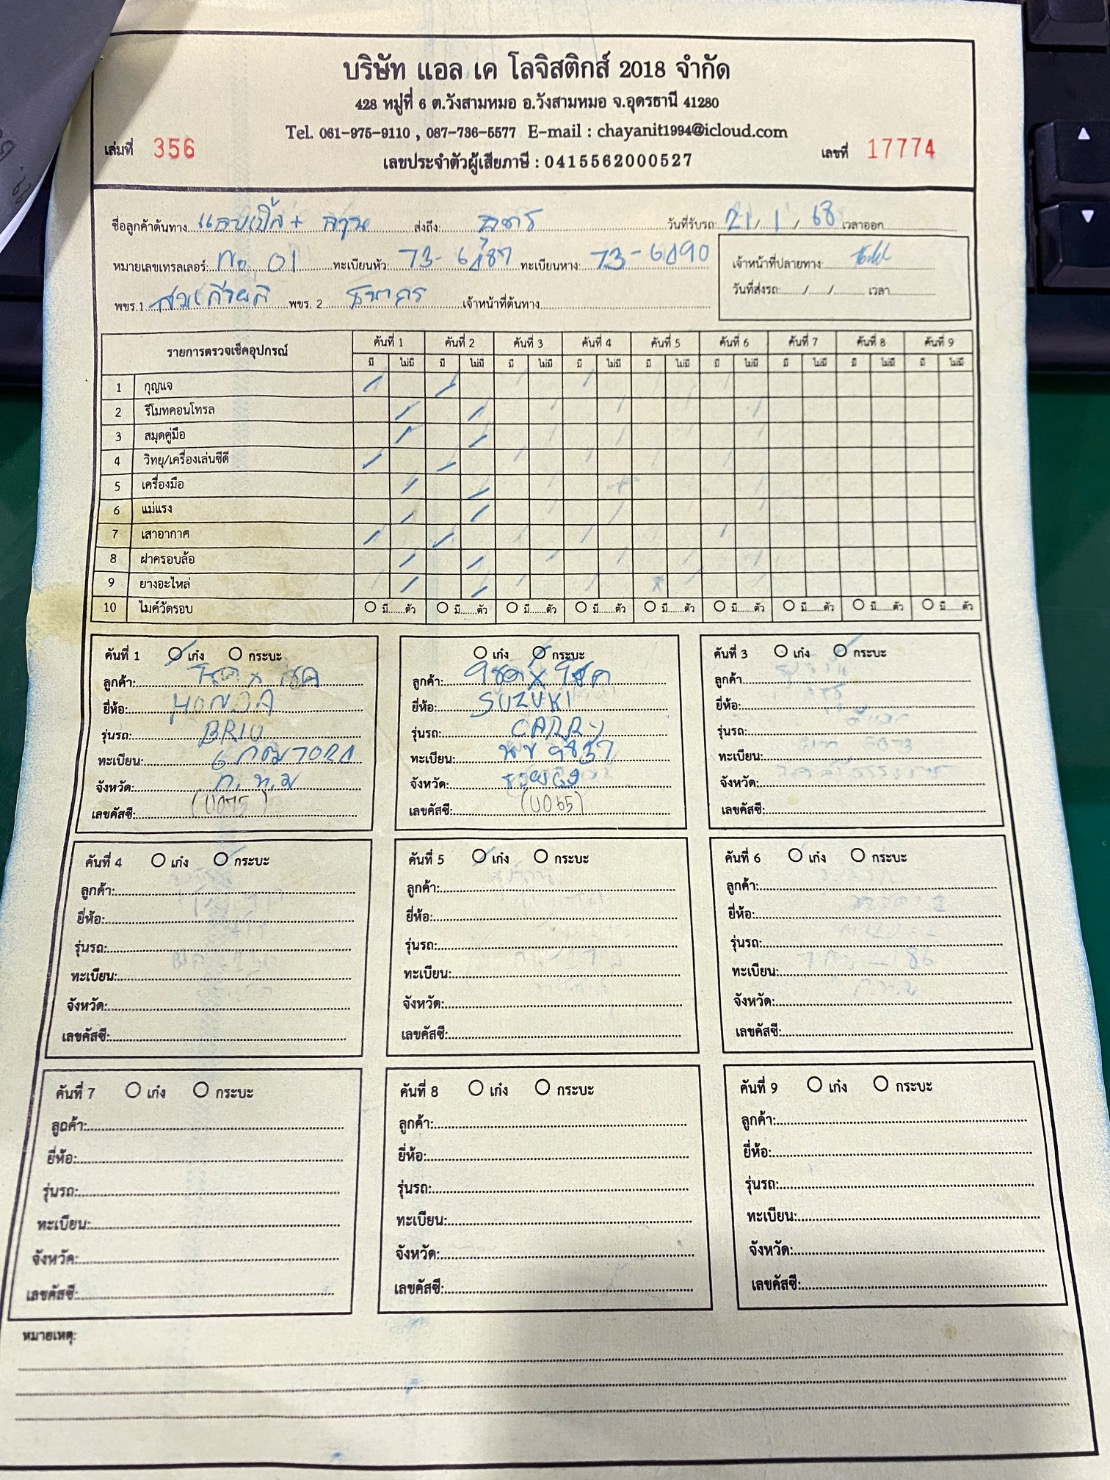 บริษัท แอล เค โลจิสติกส์ 2018 จำกัด
428 หมู่ที่ 6 ต.วังสามหมอ อ.วังสามหมอ จ.อุดรธานี 41280
Tel. 061-975-9110 , 087-736-5577 E-mail : chayanit1994@icloud.com
เล่มที่ 356 เลขประจำตัวผู้เสียภาษี : 0415562000527 เลขที่ 17774
ชื่อลูกค้าต้นทาง ส่งถึง: อุดร วันที่รับรถ 21/1/68 เวลาออก
หมายเลขเทรลเลอร์: No. 01 ทะเบียนหัว: ทะเบียนหาง: 73-6490 เจ้าหน้าที่ปลายทาง:
พขร.1 พขร. 2 ธนากร เจ้าหน้าที่ต้นทาง วันที่ส่งรถ: / / เวลา
รายการตรวจเช็คอุปกรณ์ คันที่ 1 คันที่ 2 คันที่ 3 คันที่ 4 คันที่ 5 คันที่ 6 คันที่ 7 คันที่ 8 คันที่ 9
มี ไม่มี มี ไม่มี มี ไม่มี มี ไม่มี มี ไม่มี มี ไม่มี มี ไม่มี มี ไม่มี มี ไม่มี
1 กุญแจ
2 รีโมทคอนโทรล
3 สมุดคู่มือ
4 วิทยุ/เครื่องเล่นซีดี
5 เครื่องมือ
6 แม่แรง
7 เสาอากาศ
8 ฝาครอบล้อ
9 ยางอะไหล่
10 ไมค์วัดรอบ มี ตัว มี ตัว มี ตัว มี ตัว มี ตัว มี ตัว มี ตัว มี ตัว มี ตัว
คันที่ 1 เก๋ง กระบะ
ลูกค้า:
ยี่ห้อ:
รุ่นรถ: BRIO
ทะเบียน:
จังหวัด: ก.ท.ม
เลขคัสซี:
เก๋ง กระบะ
ลูกค้า: โชค x โชค
ยี่ห้อ: SUZUKI
รุ่นรถ: CARRY
ทะเบียน: 9837
จังหวัด:
เลขคัสซี: (U065)
คันที่ 3 เก๋ง กระบะ
ลูกค้า
ยี่ห้อ:
รุ่นรถ:
ทะเบียน:
จังหวัด:
เลขคัสซี:
คันที่ 4 เก๋ง กระบะ
ลูกค้า:
ยี่ห้อ:
รุ่นรถ:
ทะเบียน:
จังหวัด:
เลขคัสซี:
คันที่ 5 เก๋ง กระบะ
ลูกค้า:
ยี่ห้อ:
รุ่นรถ:
ทะเบียน:
จังหวัด:
เลขคัสซี:
คันที่ 6 เก๋ง กระบะ
ลูกค้า:
ยี่ห้อ:
รุ่นรถ:
ทะเบียน:
จังหวัด:
เลขคัสซี:
คันที่ 7 เก๋ง กระบะ
ลูกค้า:
ยี่ห้อ:
รุ่นรถ:
ทะเบียน:
จังหวัด:
เลขคัสซี:
คันที่ 8 เก๋ง กระบะ
ลูกค้า:
ยี่ห้อ:
รุ่นรถ:
ทะเบียน:
จังหวัด:
เลขคัสซี:
คันที่ 9 เก๋ง กระบะ
ลูกค้า:
ยี่ห้อ:
รุ่นรถ:
ทะเบียน:
จังหวัด:
เลขคัสซี:
หมายเหตุ: